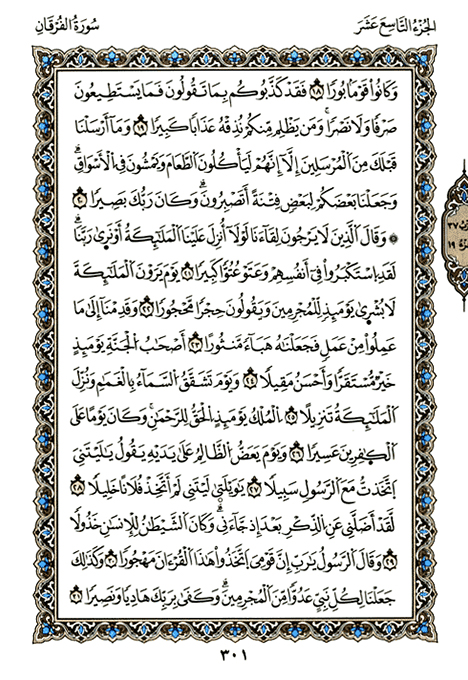 الجُزْءُ التَّاسِعَ عَشَرَ
سُورَةُ الفُرْقَانِ
وَكَانُواْ قَوْمَۢا بُورًا ١٨ فَقَدْ كَذَّبُوكُم بِمَا تَقُولُونَ فَمَا يَسْتَطِيعُونَ
صَرْفًا وَلَا نَصْرًا ۚ وَمَن يَظْلِم مِّنكُمْ نُذِقْهُ عَذَابًا كَبِيرًا ١٩ وَمَآ أَرْسَلْنَا
قَبْلَكَ مِنَ الْمُرْسَلِينَ إِلَّآ إِنَّهُمْ لَيَأْكُلُونَ الطَّعَامَ وَيَمْشُونَ فِي الْأَسْوَاقِ ۗ
وَجَعَلْنَا بَعْضَكُمْ لِبَعْضٍ فِتْنَةً أَتَصْبِرُونَ ۗ وَكَانَ رَبُّكَ بَصِيرًا ٢٠
۞ وَقَالَ الَّذِينَ لَا يَرْجُونَ لِقَآءَنَا لَوْلَآ أُنزِلَ عَلَيْنَا الْمَلَٰٓئِكَةُ أَوْ نَرَىٰ رَبَّنَا ۗ
لَقَدِ اسْتَكْبَرُواْ فِيٓ أَنفُسِهِمْ وَعَتَوْ عُتُوًّا كَبِيرًا ٢١ يَوْمَ يَرَوْنَ الْمَلَٰٓئِكَةَ
لَا بُشْرَىٰ يَوْمَئِذٍ لِّلْمُجْرِمِينَ وَيَقُولُونَ حِجْرًا مَّحْجُورًا ٢٢ وَقَدِمْنَآ إِلَىٰ مَا
عَمِلُواْ مِنْ عَمَلٍ فَجَعَلْنَٰهُ هَبَآءً مَّنثُورًا ٢٣ أَصْحَٰبُ الْجَنَّةِ يَوْمَئِذٍ
خَيْرٌ مُّسْتَقَرًّا وَأَحْسَنُ مَقِيلًا ٢٤ وَيَوْمَ تَشَقَّقُ السَّمَآءُ بِالْغَمَٰمِ وَنُزِّلَ
الْمَلَٰٓئِكَةُ تَنزِيلًا ٢٥ الْمُلْكُ يَوْمَئِذٍ الْحَقُّ لِلرَّحْمَٰنِ ۚ وَكَانَ يَوْمًا عَلَى
الْكَٰفِرِينَ عَسِيرًا ٢٦ وَيَوْمَ يَعَضُّ الظَّالِمُ عَلَىٰ يَدَيْهِ يَقُولُ يَٰلَيْتَنِي
اتَّخَذْتُ مَعَ الرَّسُولِ سَبِيلًا ٢٧ يَٰوَيْلَتَىٰ لَيْتَنِي لَمْ أَتَّخِذْ فُلَانًا خَلِيلًا ٢٨
لَّقَدْ أَضَلَّنِي عَنِ الذِّكْرِ بَعْدَ إِذْ جَآءَنِي ۗ وَكَانَ الشَّيْطَٰنُ لِلْإِنسَٰنِ خَذُولًا
٢٩ وَقَالَ الرَّسُولُ يَٰرَبِّ إِنَّ قَوْمِي اتَّخَذُواْ هَٰذَا الْقُرْءَانَ مَهْجُورًا ٣٠ وَكَذَٰلِكَ
جَعَلْنَا لِكُلِّ نَبِيٍّ عَدُوًّا مِّنَ الْمُجْرِمِينَ ۗ وَكَفَىٰ بِرَبِّكَ هَادِيًا وَنَصِيرًا ٣١
٣٠١